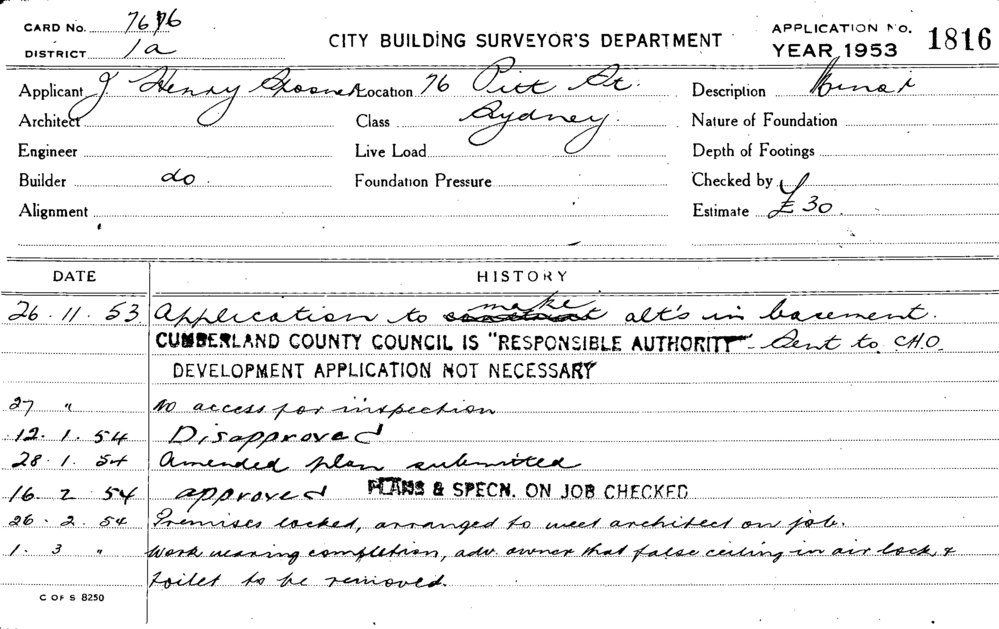 CARD No. 7676
DISTRICT 1a
CITY BUILDING SURVEYOR'S DEPARTMENT
APPLICATION No. 1816
YEAR 1953
Applicant J Henry Location 76 Pitt St. Description Minor
Architect Class Sydney. Nature of Foundation
Engineer Live Load Depth of Footings
Builder do. Foundation Pressure Checked by
Alignment Estimate £30.
DATE HISTORY
26.11.53 Application to make alt's in basement.
CUMBERLAND COUNTY COUNCIL IS "RESPONSIBLE AUTHORITY" Sent to C.H.O.
DEVELOPMENT APPLICATION NOT NECESSARY
27 " No access for inspection
12.1.54 Disapproved
28.1.54 Amended plan submitted
16.2 54 approved PLANS & SPECN. ON JOB CHECKED
26.2.54 Premises locked, arranged to meet architect on job.
1.3 " Work nearing completion, adv. owner that false ceiling in air lock, &
toilet to be removed.
C OF S 8250